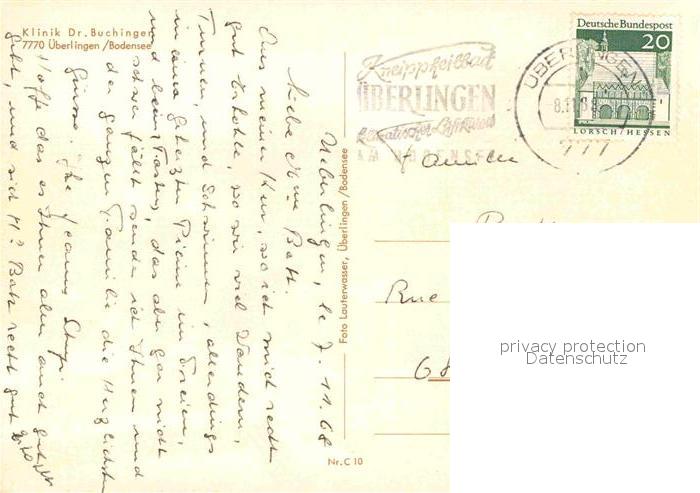 Klinik Dr. Buchinger
7770 Überlingen/Bodensee
Ueberlingen, le 7. 11. 68
Liebe Mme Batt.
Aus meiner Kur, wo ich mich recht
gut erhohle, wo wir viel Wandern,
Turnen, und Schwimmen, allerdings
in eine geheizten Picine im Freien,
und beim Fasten, das aber gar nicht
schwer fällt sende ich Ihnen und
der ganzen Familie die Herzlichsten
Grüsse. Ihre Jeanne
Hoffe das es Ihnen allen auch gut
geht, und sich Mr Batt recht gut
Foto Lauterwasser, Überlingen/Bodensee
Nr. C 10
Kneippheilbad
ÜBERLINGEN
AM BODENSEE
ÜBERLINGEN
-8.11.68
777
Deutsche Bundespost
20
LORSCH/HESSEN
Famille
Rue
68
privacy protection
Datenschutz